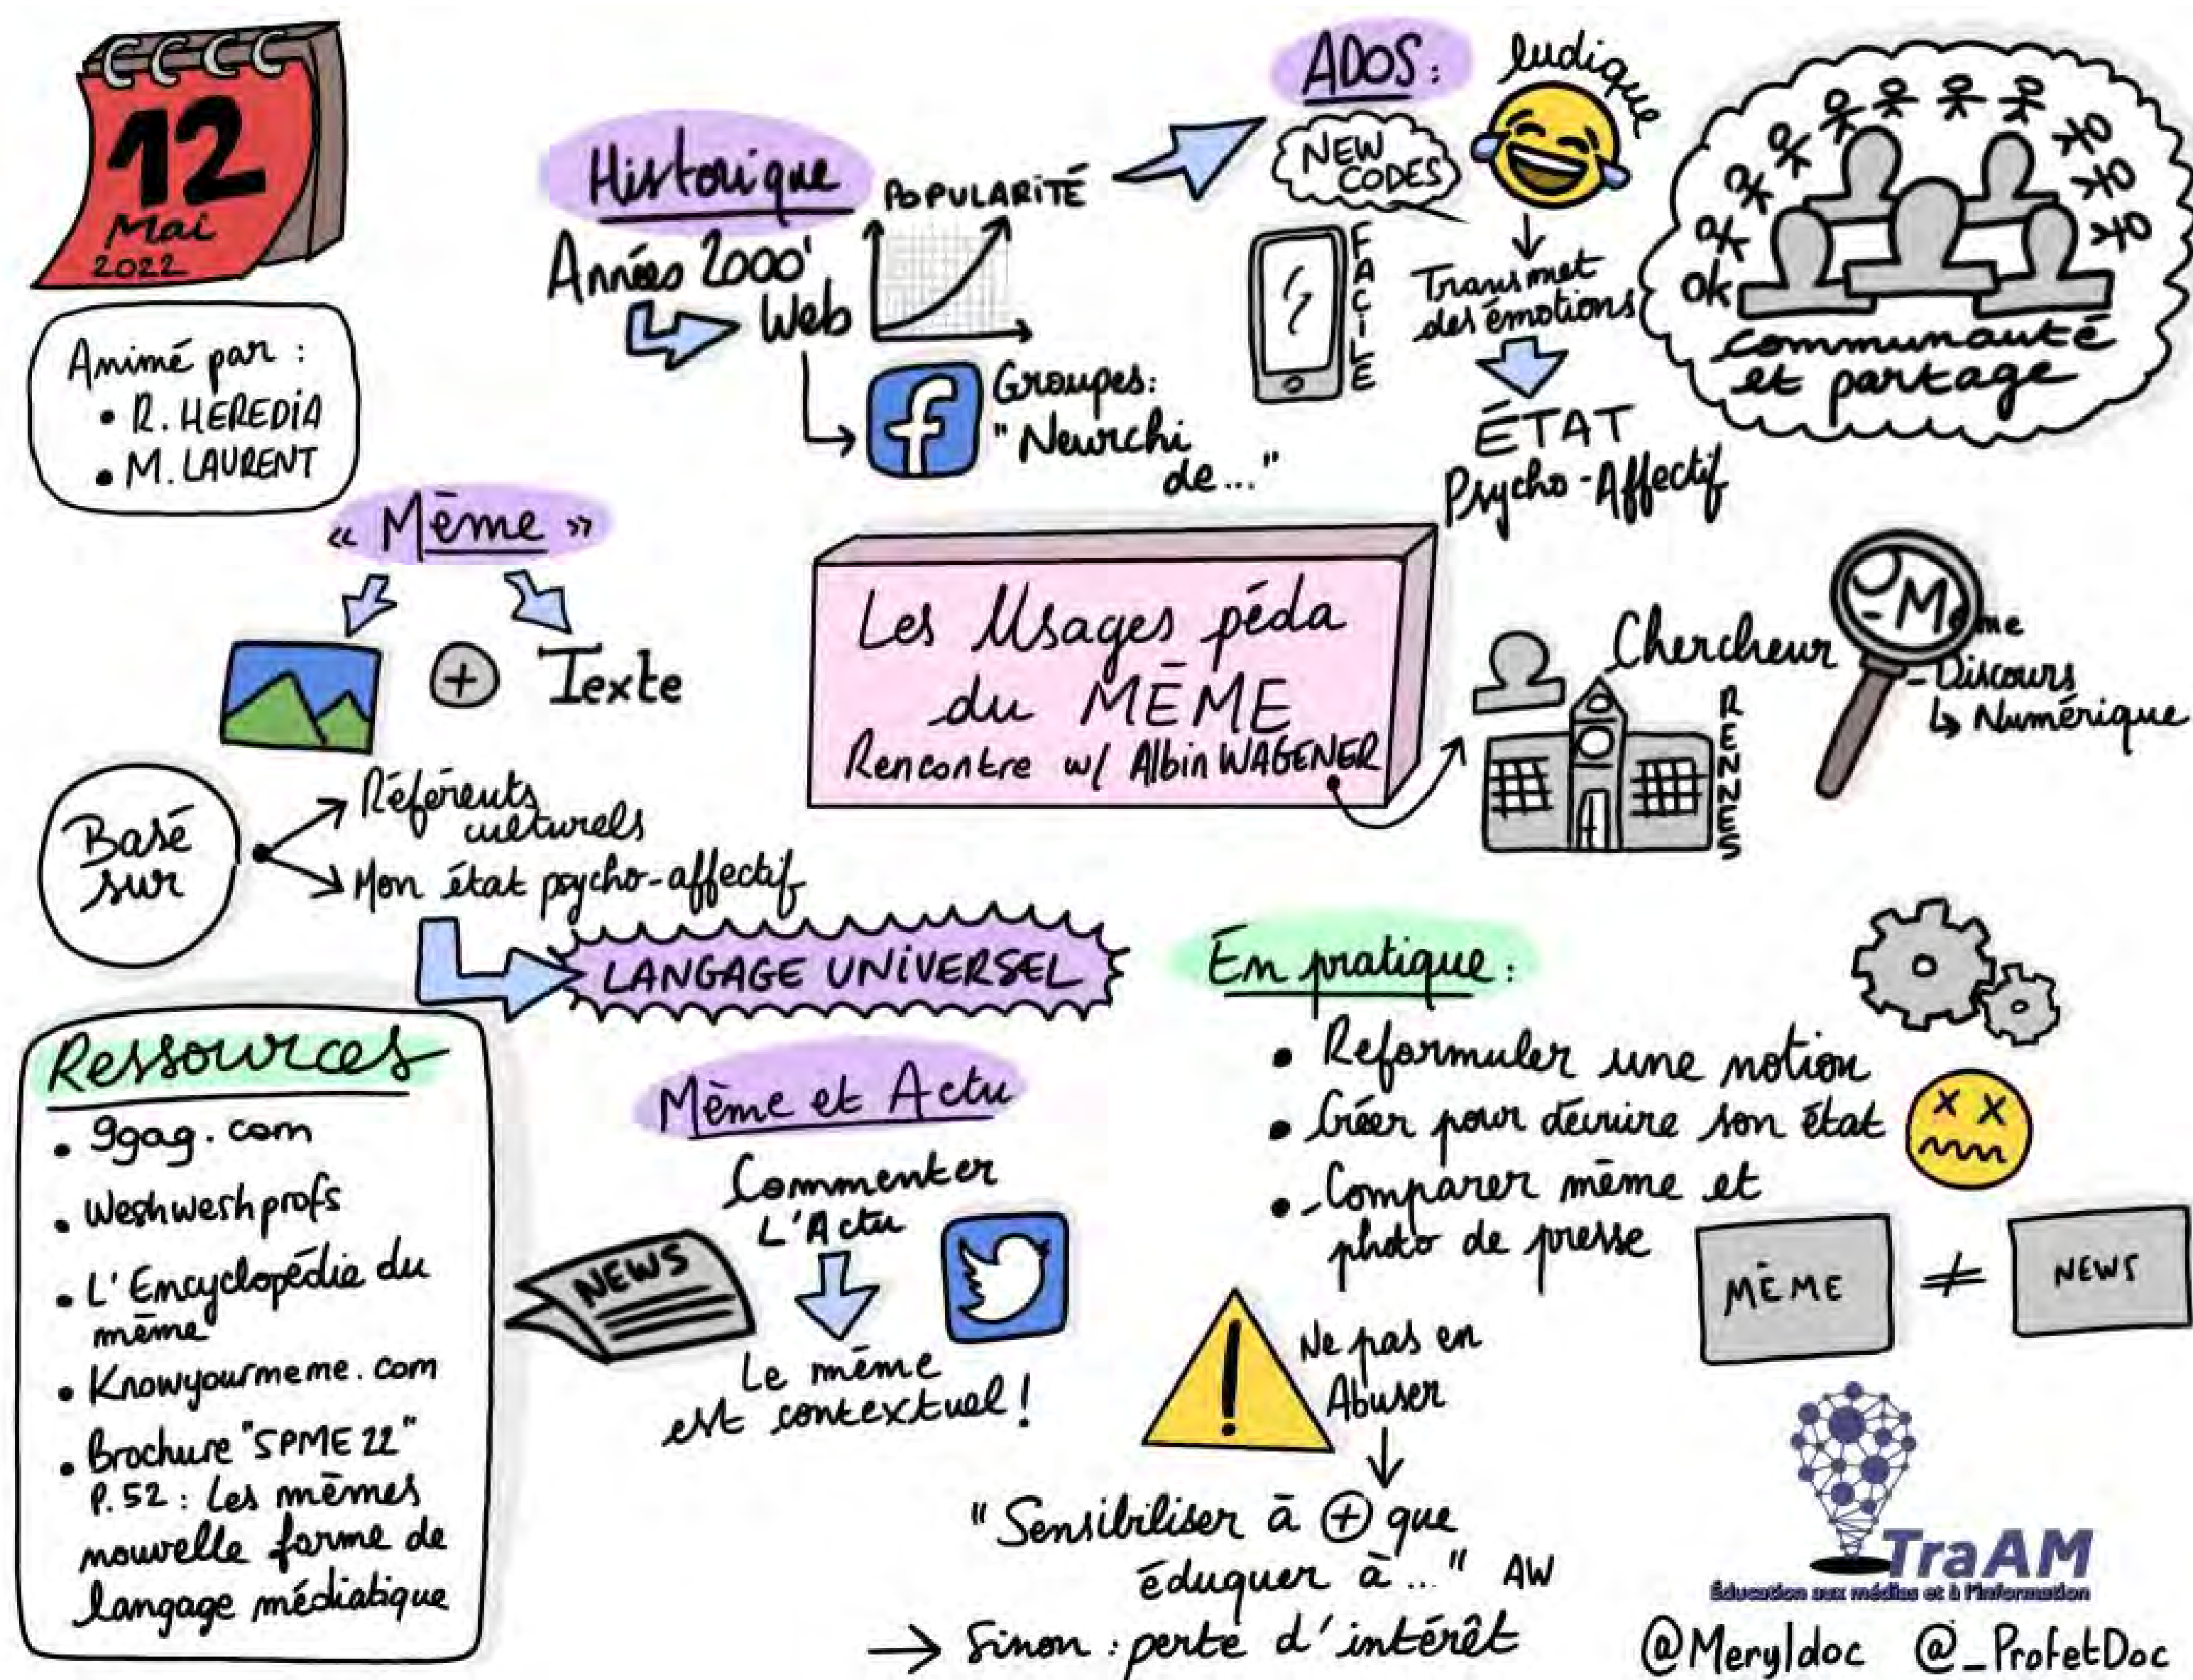 12
Mai
2022
Animé par :
• R. HEREDIA
• M. LAURENT
Historique
Années 2000'
Web
POPULARITÉ
Groupes:
"Neurchi
de..."
ADOS:
NEW
CODES
FACILE
ludique
Transmet
des émotions
ÉTAT
Psycho-Affectif
ok
communauté
et partage
« Mème »
+ Texte
Basé
sur
Référents
culturels
Mon état psycho-affectif
LANGAGE UNIVERSEL
Les Usages péda
du MÈME
Rencontre w/ Albin WAGENER
Chercheur
RENNES
- Mème
- Discours
↳ Numérique
Ressources
• 9gag.com
• Weshweshprofs
• L'Encyclopédia du
mème
• Knowyourmeme.com
• Brochure "SPME 22"
P.52 : Les mèmes
nouvelle forme de
langage médiatique
Mème et Actu
Commenter
L'Actu
NEWS
Le mème
est contextuel !
En pratique :
• Reformuler une notion
• Créer pour décrire son état
• Comparer mème et
photo de presse
MÈME ≠ NEWS
!
Ne pas en
Abuser
"Sensibiliser à + que
éduquer à..." AW
→ Sinon : perte d'intérêt
TraAM
Éducation aux médias et à l'information
@Meryldoc @_ProfetDoc